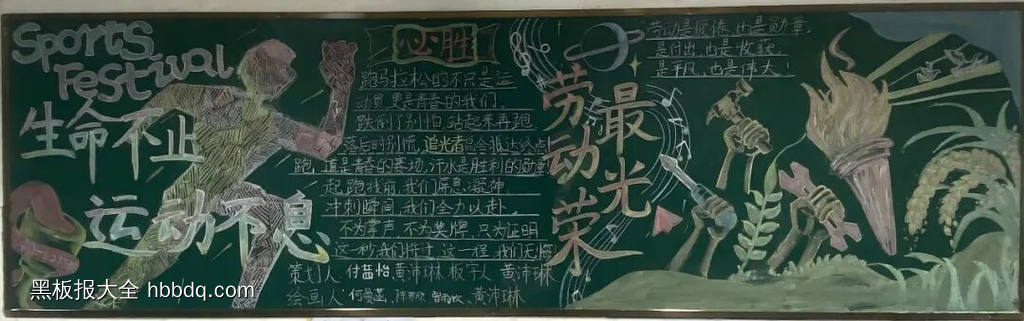 Sports
Festival
生命不止
运动不息
必胜
跑马拉松的不只是运
动员,更是青春的我们
跌倒了别怕,站起来再跑
落后时别慌,追光者总会抵达终点
跑道是青春的赛场,汗水是胜利的勋章
起跑线前,我们屏息凝神
冲刺瞬间,我们全力以赴
不为掌声,不为奖牌,只为证明
这一秒我们拼过,这一程,我们无悔
策划人:付蓓怡 黄沛琳 板字人 黄沛琳
绘画人: 黄沛琳
劳动最光荣
劳动是锻炼,也是勋章,
是付出,也是收获,
是平凡,也是伟大!
黑板报大全 hbbdq.com